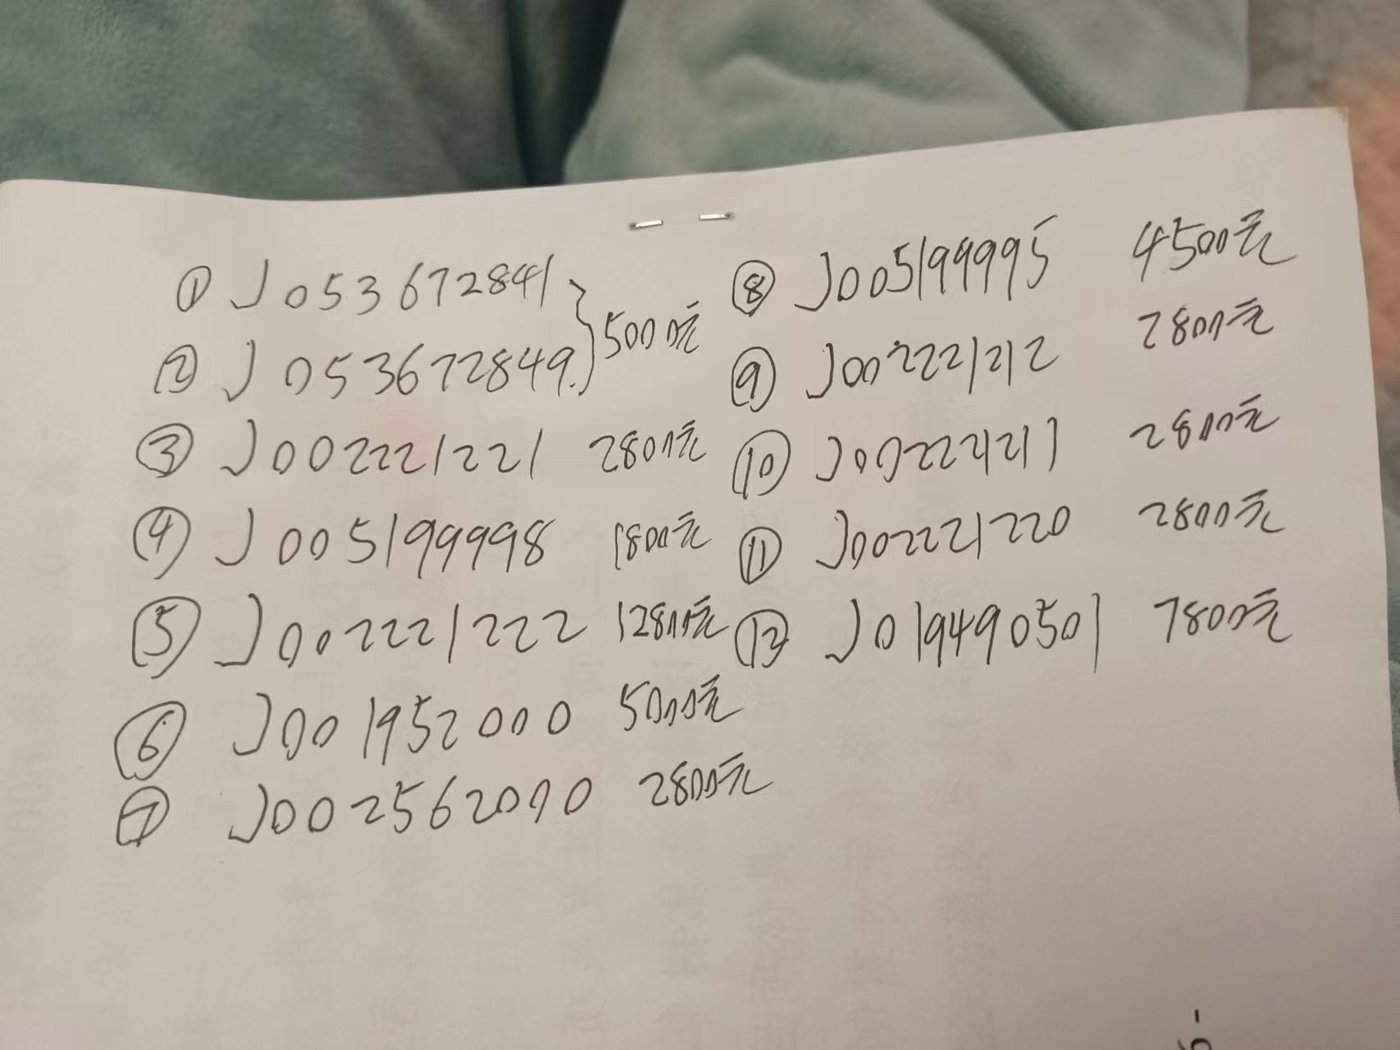 ① J053672841
② J053672849. } 5000元
③ J002221221 2800元
④ J005199998 1800元
⑤ J002221222 12800元
⑥ J001952000 5000元
⑦ J002562000 2800元
⑧ J005199995 4500元
⑨ J002221212 2800元
⑩ J002221211 2800元
⑪ J002221220 2800元
⑫ J019490501 7800元